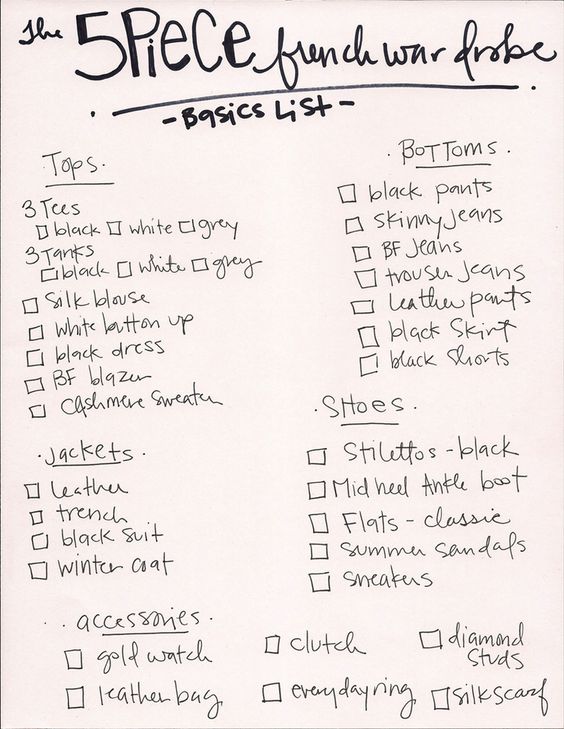 The 5 PIECE french wardrobe
- Basics List -
Tops.
3 Tees
black white grey
3 Tanks
black white grey
silk blouse
white button up
black dress
BF blazer
Cashmere sweater
. Jackets.
leather
trench
black suit
winter coat
. BOTTOMS.
black pants
skinny jeans
BF Jeans
trouser jeans
leather pants
black skirt
black shorts
. SHOES.
Stilettos - black
Mid heel Ankle boot
Flats - classic
summer sandals
sneakers
. accessories.
gold watch
leather bag
clutch
everyday ring
diamond
studs
silk scarf